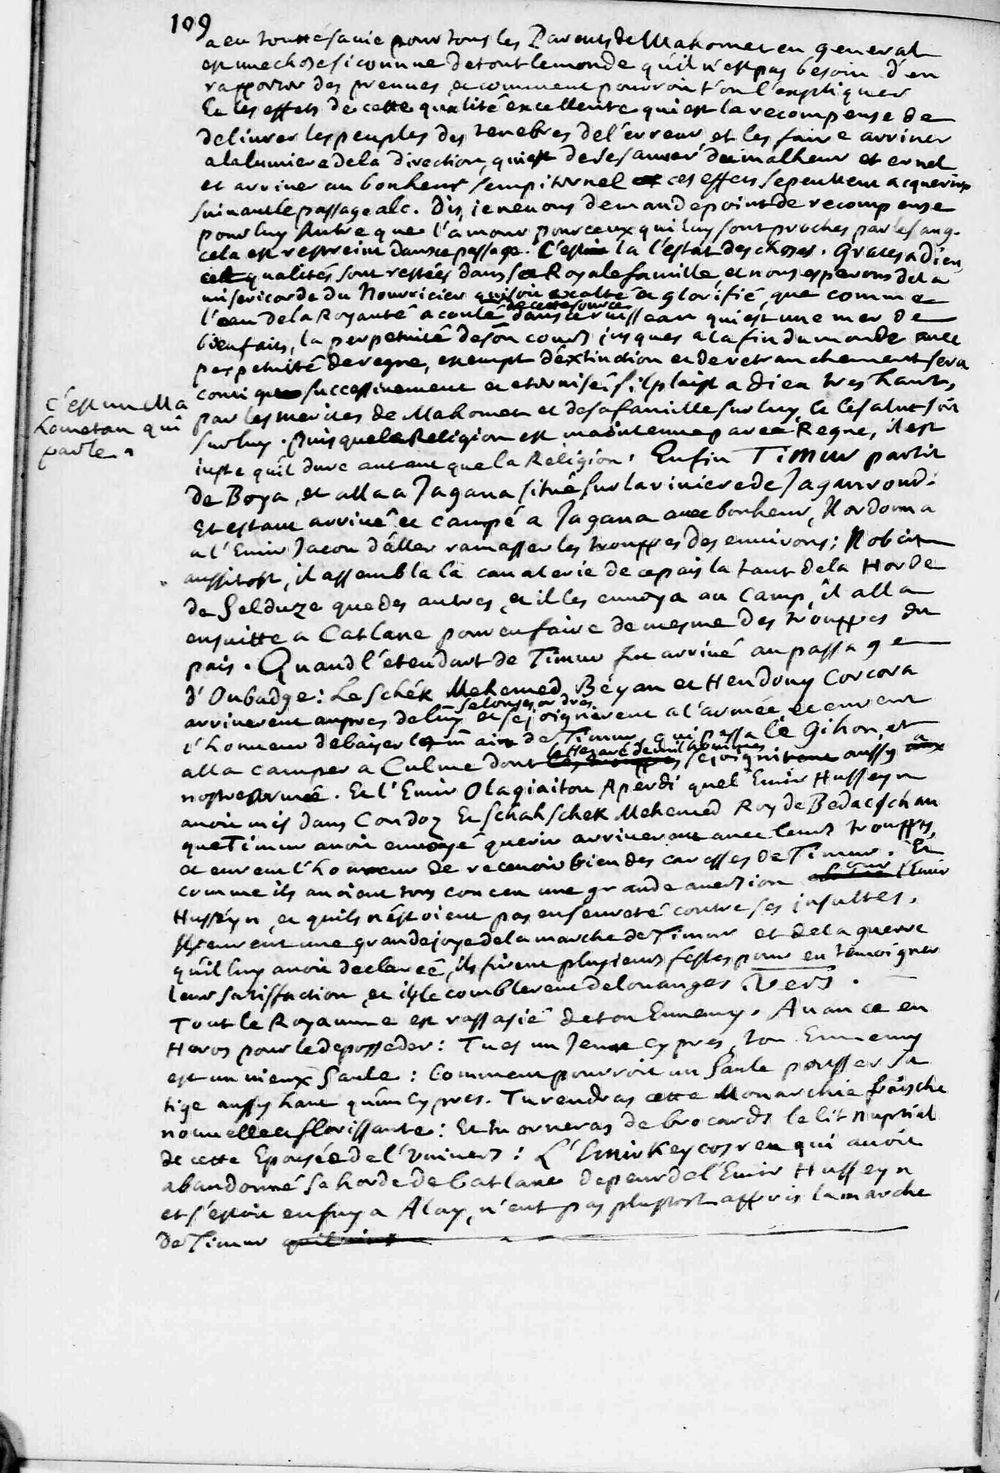 109
a eu toutte sa vie pour tous les Parents de Mahomet en general
est une chose si connue de tout le monde qu'il n'est pas besoin d'en
rapporter des preuves, et comment pourroit t'on l'expliquer
Et les effets de cette qualité excellente qui est la recompense de
delivrer les peuples des tenebres de l'erreur et les faire arriver
a la lumiere de la direction, qui est de se sauver du malheur eternel
et arriver au bonheur sempiternel ces effets se peuvent acquerir
suivant le passage alc. Dis, je ne vous demande point de recompense
pour luy autre que l'amour pour ceux qui luy sont proches par le sang.
cela est restreint dans ce passage. C'est la l'estat des choses. Graces a dieu,
qualités sont restées dans sa Royale famille, et nous esperons de la
misericorde du Nourricier qui soit exalté et glorifié, que comme
l'eau de la Royauté a coulé de cette source dans ce ruisseau qui est une mer de
bienfaits, la perpetuité de son cours jusques a la fin du monde avec
perpetuité de regne, exempt d'extinction et de retranchement sera
contigue successivement et eternisé s'il plaist a dieu tres haut,
c'est un Ma
hometan qui
parle.
par les merites de Mahomet et de sa famille sur luy et le salut soit
sur luy. puis que la Religion est maintenue par ce Regne, il est
juste qu'il dure autant que la Religion. Enfin Timur partit
de Boya, et alla a Jagana situé sur la riviere de Jaganroud.
Et estant arrivé et campé a Jagana avec bonheur, Il ordonna
a l'Emir Jacou d'aller ramasser les trouppes des environs; Il obeit
aussitost, il assembla la cavalerie de ce pais la tant de la Horde
de Selduze que des autres, et il les envoya au Camp, il alla
ensuitte a Catlane pour en faire de mesme des trouppes du
pais. Quand l'etendart de Timur fut arrivé au passage
d'Oubadge: Le Schék Mehemed Béyan et Hendouy Corcora
arriverent aupres de luy selon ses ordres et se joignirent a l'armée et eurent
l'honneur de baiser la main de Timur, qui passa le Gihon, et
alla camper a Culme dont le Hezaré de mil hommes se joignirent aussy a
nostre armée. Et l'Emir Olagiaitou Aperdi que l'Emir Husseyn
avoit mis dans Condoz Et Schah Schek Mehemed Roy de Bedacschan
que Timur avoit envoyé querir arriverent avec leurs trouppes,
et eurent l'honneur de recevoir bien des caresses de Timur. Et
comme ils avoient tous conceu une grande aversion l'Emir
Husséyn, et quils n'estoient pas en seureté contre ses insultes.
Ils eurent une grande joye de la marche de Timur et de la guerre
qu'il luy avoit declarée, ils firent plusieurs festes pour en temoigner
leur satisfaction, et ils le comblerent de louanges. Vers.
Tout le Royaume est rassasié de ton Ennemy. Avance en
Heros pour le deposseder: Tu es un Jeune cypres, ton Ennemy
est un vieux Saule: Comment pourroit un Saule pousser sa
tige aussy haut qu'un Cypres. Tu rendras cette Monarchie fraische
nouvelle et florissante: Et tu orneras de brocards le lit Nuptial
de cette Epousée de l'univers: L'Emir Keycosreu qui avoit
abandonné sa horde de Catlane de peur de l'Emir Husseyn
et s'estoit enfuy a Alay, n'eut pas plustost appris la marche
de Timur